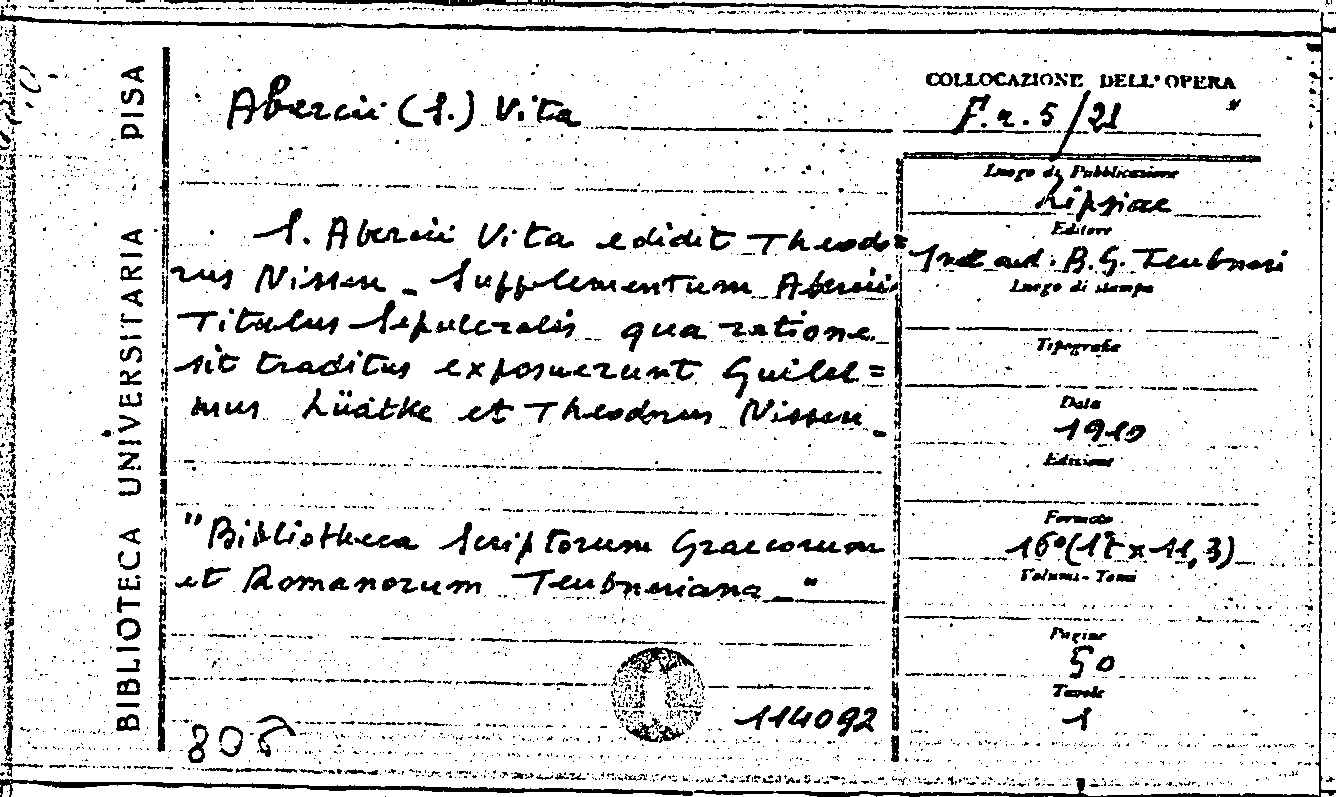 BIBLIOTECA UNIVERSITARIA - PISA
Abercii (S.) Vita
COLLOCAZIONE DELL'OPERA
F. r. 5/21
S. Abercii Vita edidit Theodo=
rus Nissen - Supplementum Abercii
Titulus Sepulcralis qua ratione
sit traditus exposuerunt Guilel=
mus Lüdtke et Theodorus Nissen -
"Bibliotheca Scriptorum Graecorum
et Romanorum Teubneriana - "
114092
806
Luogo di Pubblicazione
Lipsiae
Editore
B. G. Teubneri
Luogo di stampa
Tipografia
Data
1910
Edizione
Formato
16° (17 x 11,3)
Volumi - Tomi
Pagine
50
Tavole
1